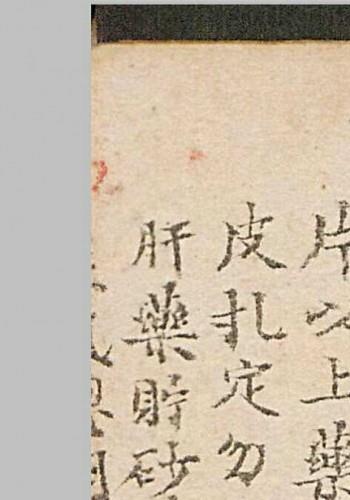 片以上藥
皮扎定勿
肝藥貯砂